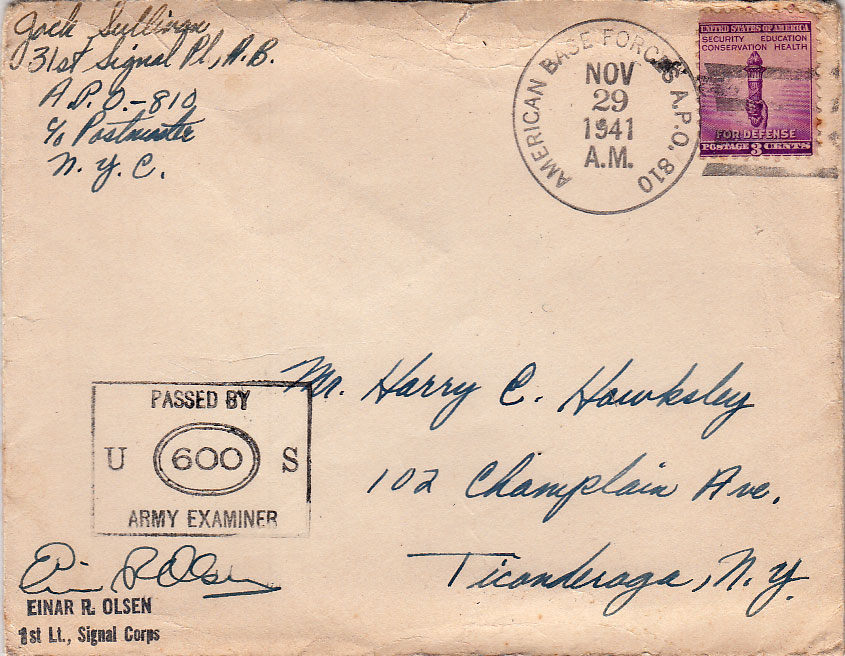 Jack Sullivan
31st Signal Pl, A.B.
A.P.O-810
c/o Postmaster
N.Y.C.
AMERICAN BASE FORCES A.P.O. 810
NOV
29
1941
A.M.
UNITED STATES OF AMERICA
SECURITY EDUCATION
CONSERVATION HEALTH
FOR DEFENSE
POSTAGE 3 CENTS
Mr. Harry C. Hawksley
102 Champlain Ave.
Ticonderoga, N.Y.
PASSED BY
U 600 S
ARMY EXAMINER
Einar R Olsen
EINAR R. OLSEN
1st Lt., Signal Corps